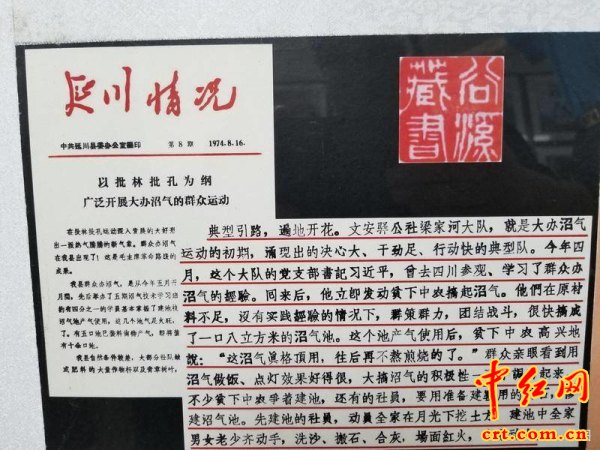 延川情况
中共延川县委办公室编印 第8期 1974.8.16.
以批林批孔为纲
广泛开展大办沼气的群众运动
在批林批孔运动深入发展的大好形
出一派热气腾腾的新气象。群众办沼气
在我县出现了！这是毛主席革命路线的
成果。
我县群众办沼气，是从今年五月开
月间，先后举办了五期沼气技术学习班
的有四分之一的学员基本掌握了建池技
沼气池产气使用。
我县自然条件较差，大部分社队做
或肥料的大量作物秆以及青草树叶，
谷溪
藏書
典型引路，遍地开花。文安驿公社梁家河大队，就是大办沼气
运动的初期，涌现出的决心大、干劲足、行动快的典型队。今年四
月，这个大队的党支部書記习近平，曾去四川参观、学习了群众办
沼气的經驗。回来后，他立即发动贫下中农搞起沼气。他們在原材
料不足，没有实践經驗的情况下，群策群力，团结战斗，很快搞成
了一口八立方米的沼气池。这个池产气使用后，贫下中农高兴地
說："这沼气真格頂用，往后再不熬煎烧的了。"群众亲眼看到用
沼气做饭、点灯效果好得很，大搞沼气的积极性 起来，
不少贫下中农爭着建池，还有的社員，要用准备建 用的
建沼气池。先建池的社員，动員全家在月光下挖土 建池中全家
男女老少齐动手，洗沙、搬石、合灰，場面紅火，
中红网
crt.com.cn